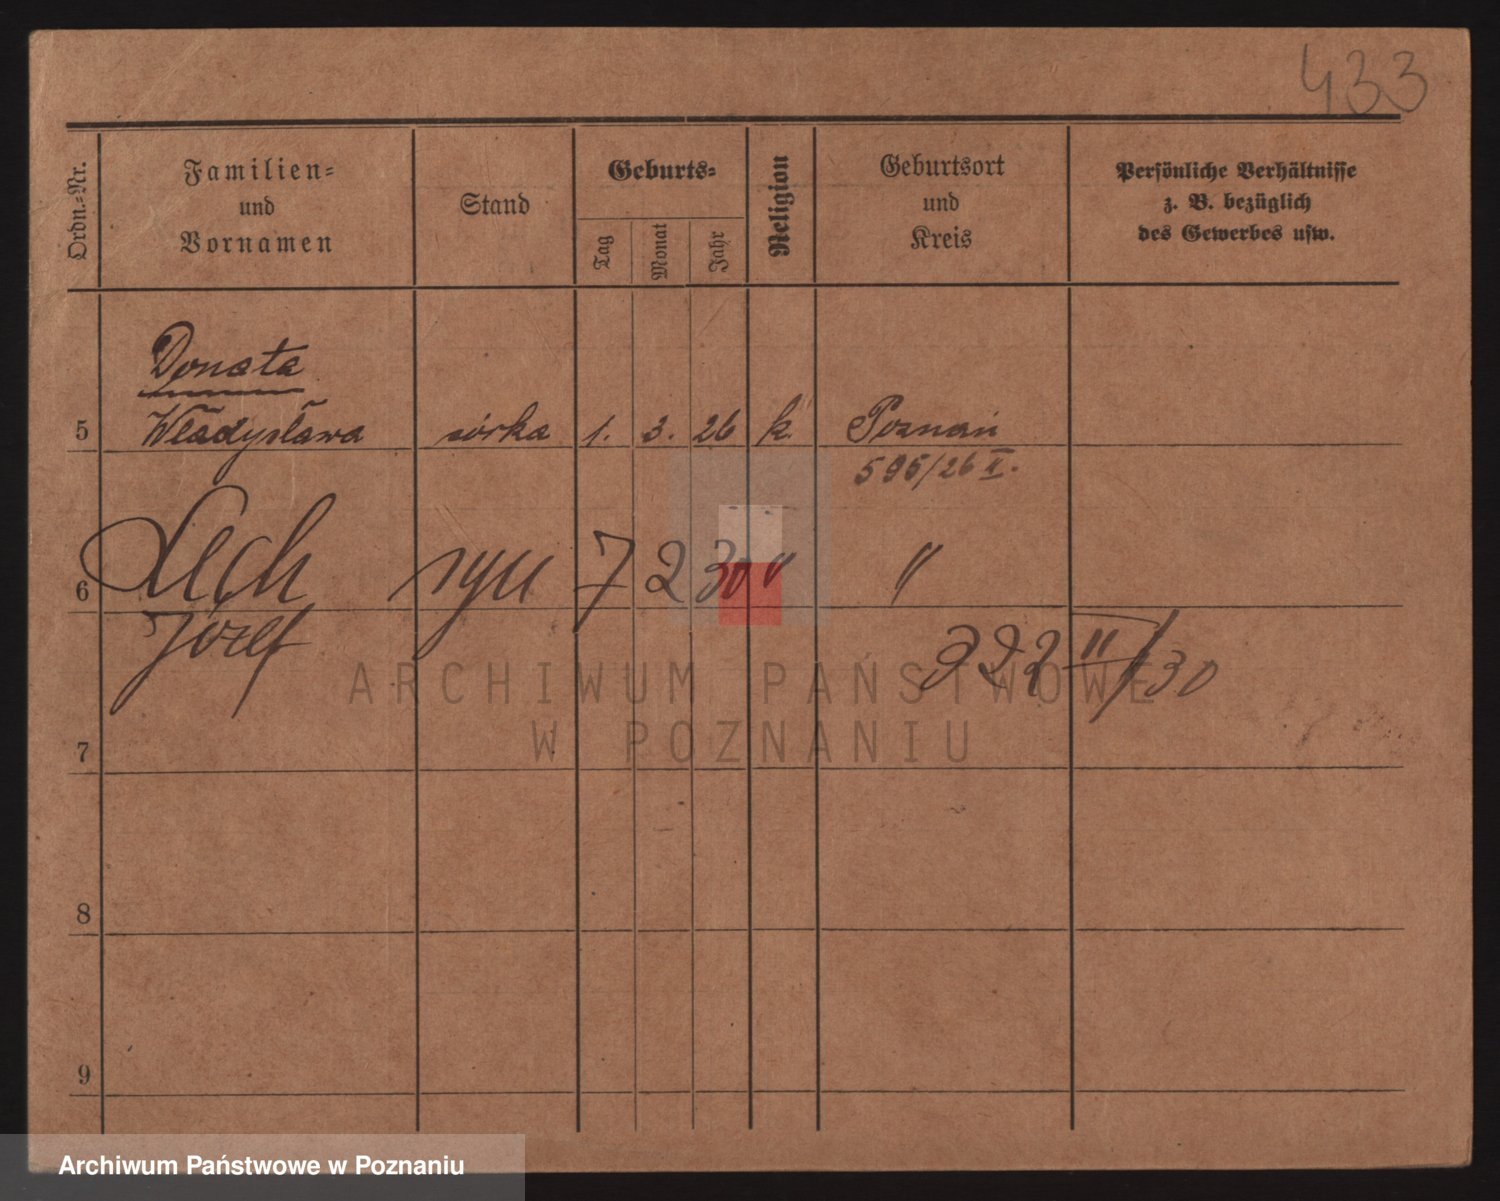 433
Ordn.-Nr.
Familien-
und
Vornamen
Stand
Geburts-
Tag
Monat
Jahr
Religion
Geburtsort
und
Kreis
Persönliche Verhältnisse
z. B. bezüglich
des Gewerbes usw.
Donata
5 Władysława córka 1. 3. 26 k. Poznań
595/26 II.
6 Lech syn 7 2 30 " "
Józef
322 II/30
ARCHIWUM PAŃSTWOWE
W POZNANIU
7
8
9
Archiwum Państwowe w Poznaniu